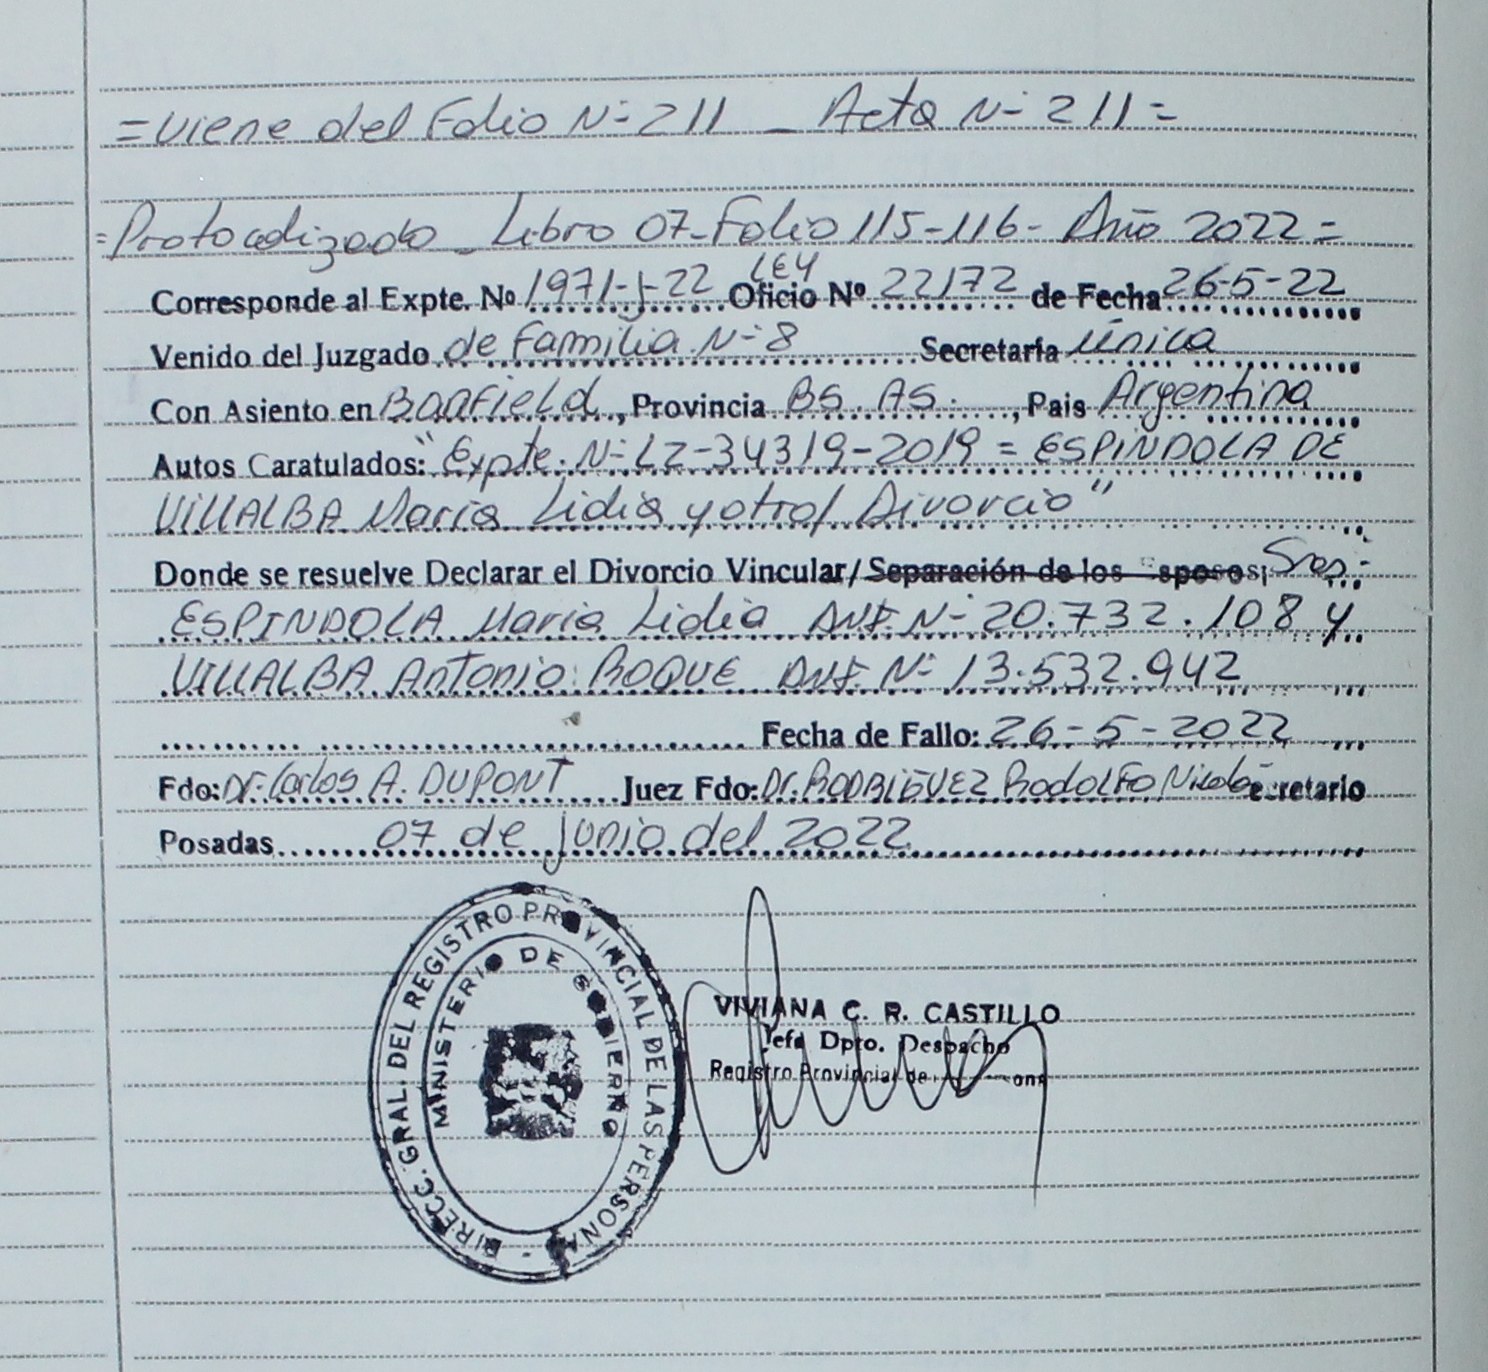 =Viene del Folio N- 211 _ Acta N- 211=
=Protocolizado_Libro 07-Folio 115-116- Año 2022=
Corresponde al Expte. Nº 1971-J-22 Oficio Nº 22172 de Fecha 26-5-22
LEY
Venido del Juzgado de Familia N-8 Secretaría única
Con Asiento en Banfield, Provincia BS. AS., Pais Argentina
Autos Caratulados: "Expte. N- LZ-34319-2019 = ESPINDOLA DE
VILLALBA Maria Lidia y otro/ Divorcio"
Donde se resuelve Declarar el Divorcio Vincular/Separación de los sposos; Sres.-
ESPINDOLA Maria Lidia DNI. N- 20.732.108 y
VILLALBA Antonio ROQUE DNI. N- 13.532.942
Fecha de Fallo: 26-5-2022
Fdo: Dr. Carlos A. DUPONT Juez Fdo: Dr. RODRIGUEZ Rodolfo Nicolás ecretario
Posadas 07 de junio del 2022
DIRECC. GRAL. DEL REGISTRO PROVINCIAL DE LAS PERSONAS
MINISTERIO DE GOBIERNO
VIVIANA C. R. CASTILLO
Jefe Dpto. Despacho
Registro Provincial de